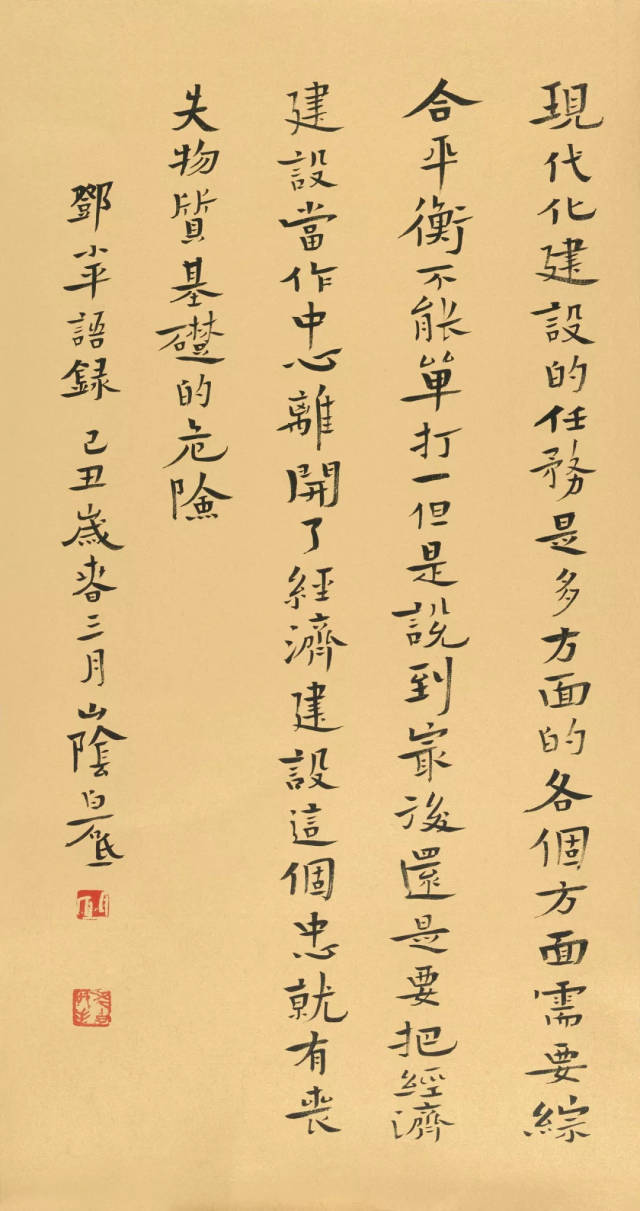 現代化建設的任務是多方面的各個方面需要綜
合平衡不能單打一但是說到最後還是要把經濟
建設當作中心離開了經濟建設這個中心就有喪
失物質基礎的危險
鄧小平語録 己丑歲春三月山陰白砥